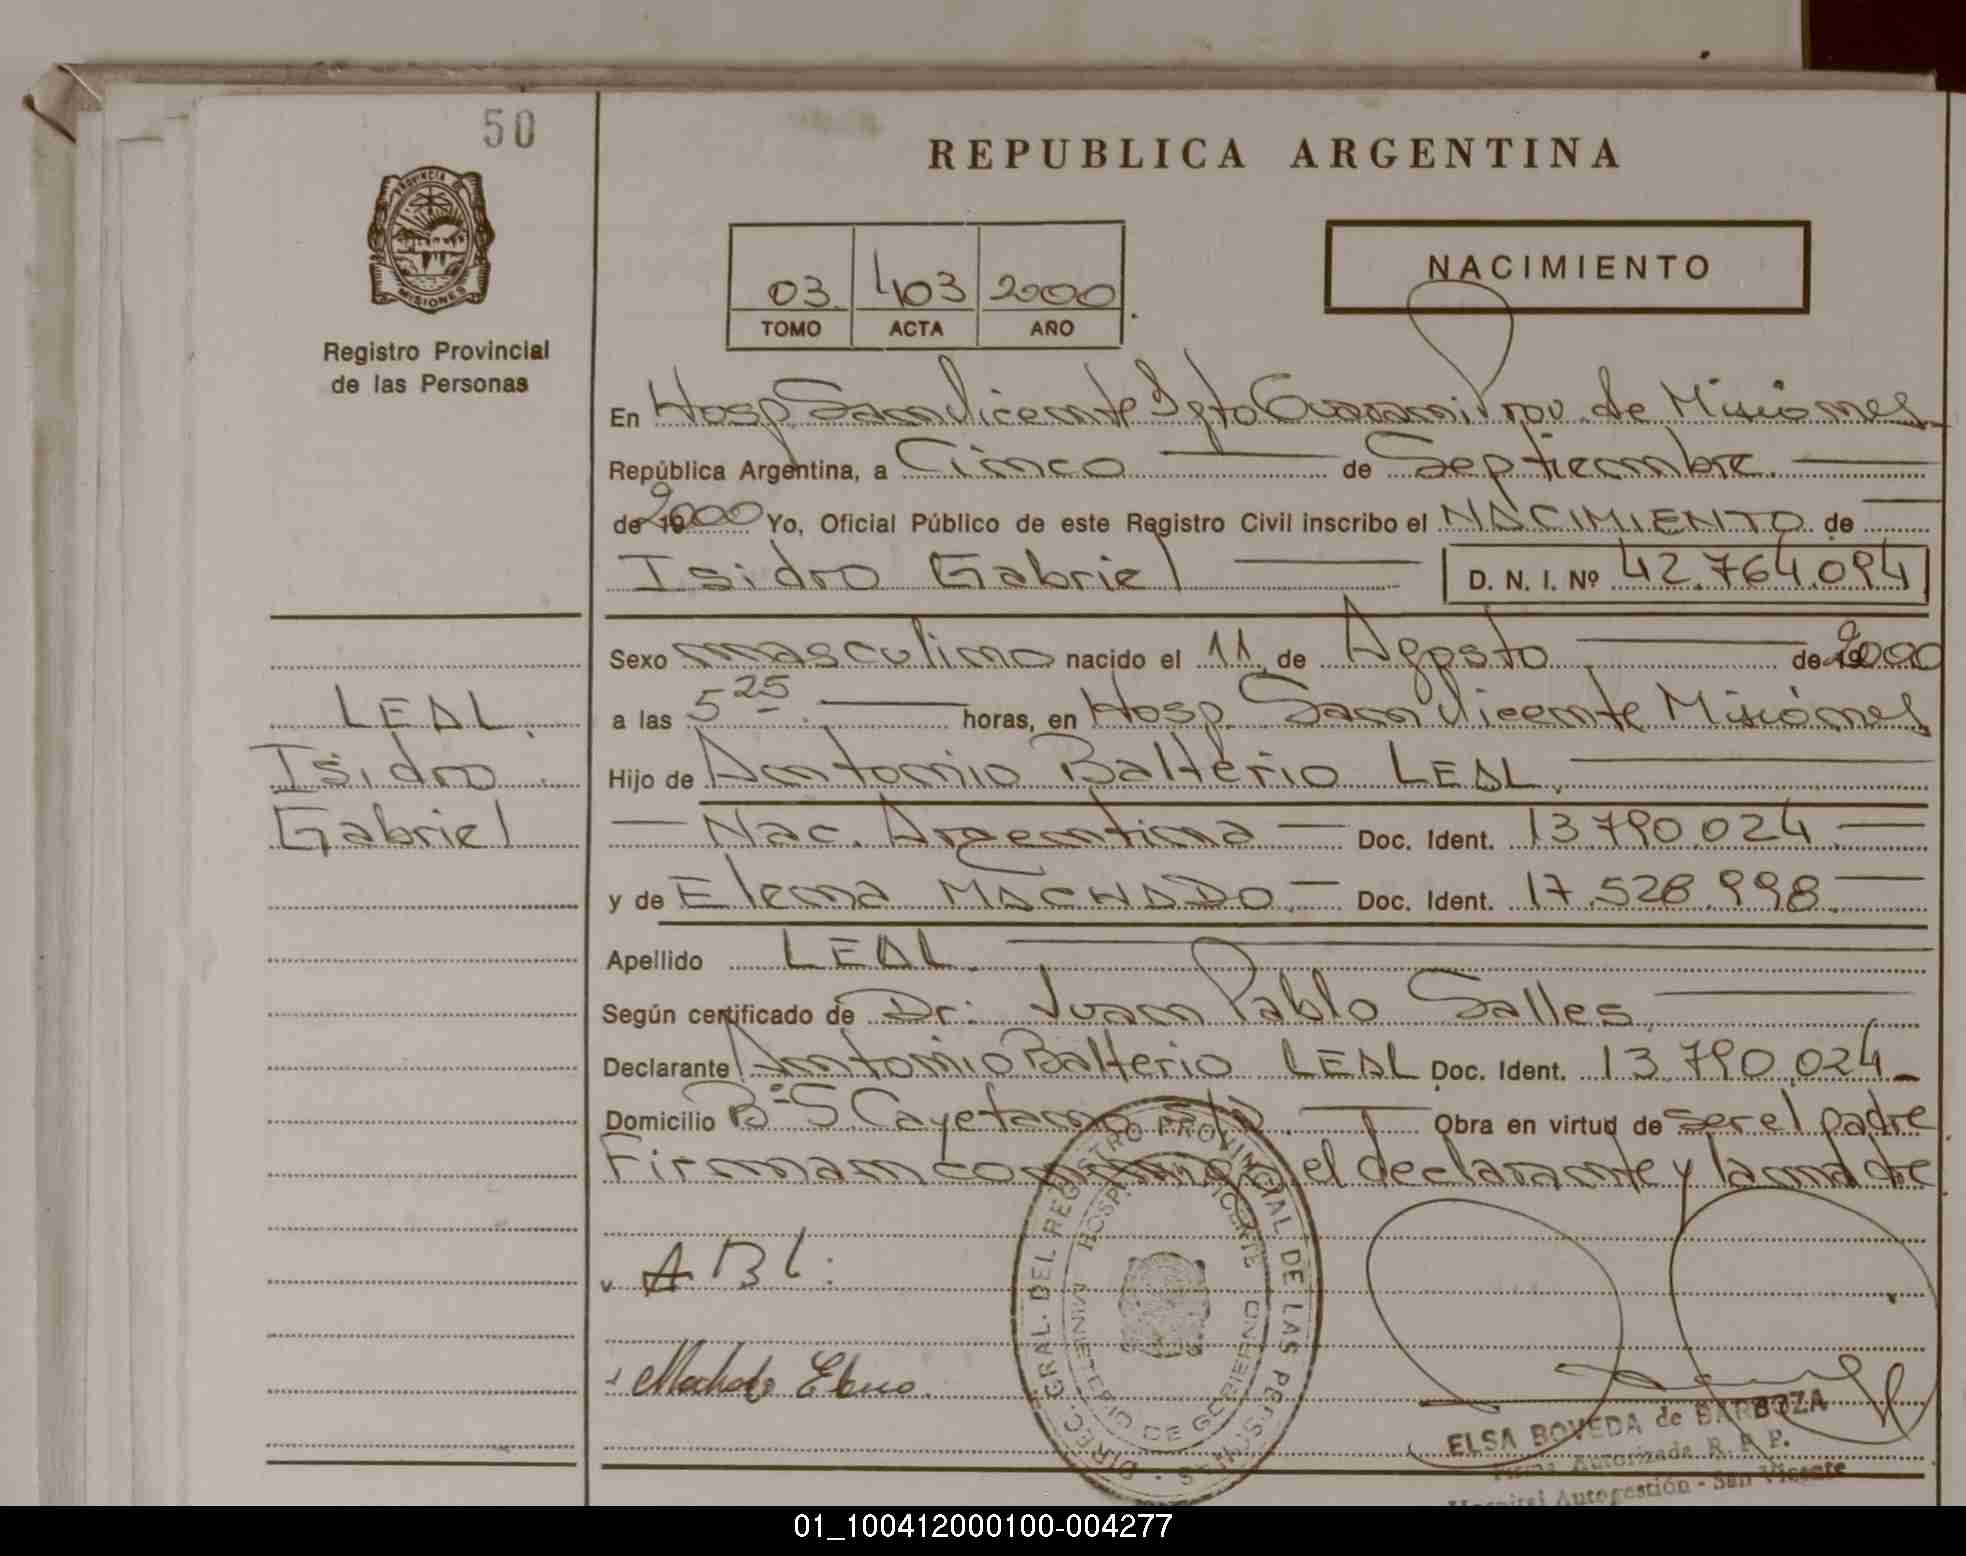 50
REPUBLICA ARGENTINA
PROVINCIA DE
MISIONES
Registro Provincial
de las Personas
03 403 2000
TOMO ACTA AÑO
NACIMIENTO
En Hosp San Vicente Dpto Guarani Prov. de Misiones
República Argentina, a Cinco de Septiembre.
de 19 2000 Yo, Oficial Público de este Registro Civil inscribo el NACIMIENTO de
Isidro Gabriel D. N. I. Nº 42.764.094
Sexo masculino nacido el 11 de Agosto de 19 2000
a las 5 25 horas, en Hosp. San Vicente Misiones
Hijo de Antonio Balterio LEAL.
Nac. Argentina Doc. Ident. 13.790.024
y de Elena MACHADO. Doc. Ident. 17.528.998.
Apellido LEAL.
Según certificado de Dr: Juan Pablo Salles.
Declarante Antonio Balterio LEAL Doc. Ident. 13.790.024
Domicilio Bº S. Cayetano s/n. Obra en virtud de ser el padre
Firman conmigo el declarante y la madre
LEAL.
Isidro
Gabriel
A B L.
Machado Elena.
DIREC. GRAL. DEL REGISTRO PROVINCIAL DE LAS PERSONAS
MINISTERIO DE GOBIERNO
ELSA BOVEDA de BARBOZA
Firma Autorizada R. P. P.
Hospital Autogestión - San Vicente
01_100412000100-004277